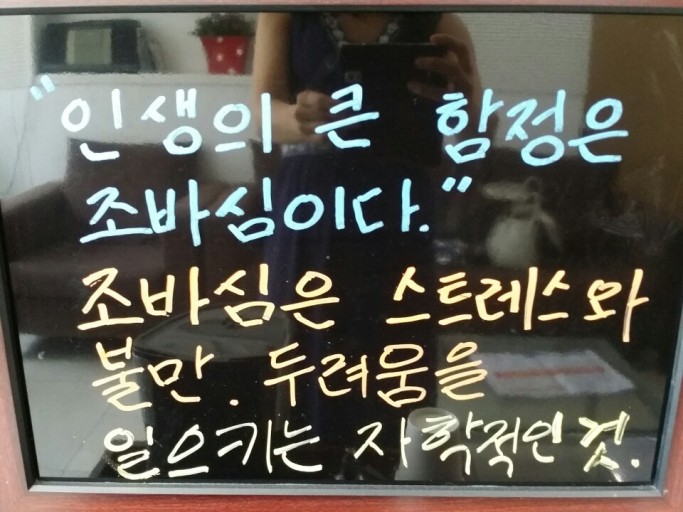 "인생의 큰 함정은
조바심이다."
조바심은 스트레스와
불만. 두려움을
일으키는 자학적인 것.